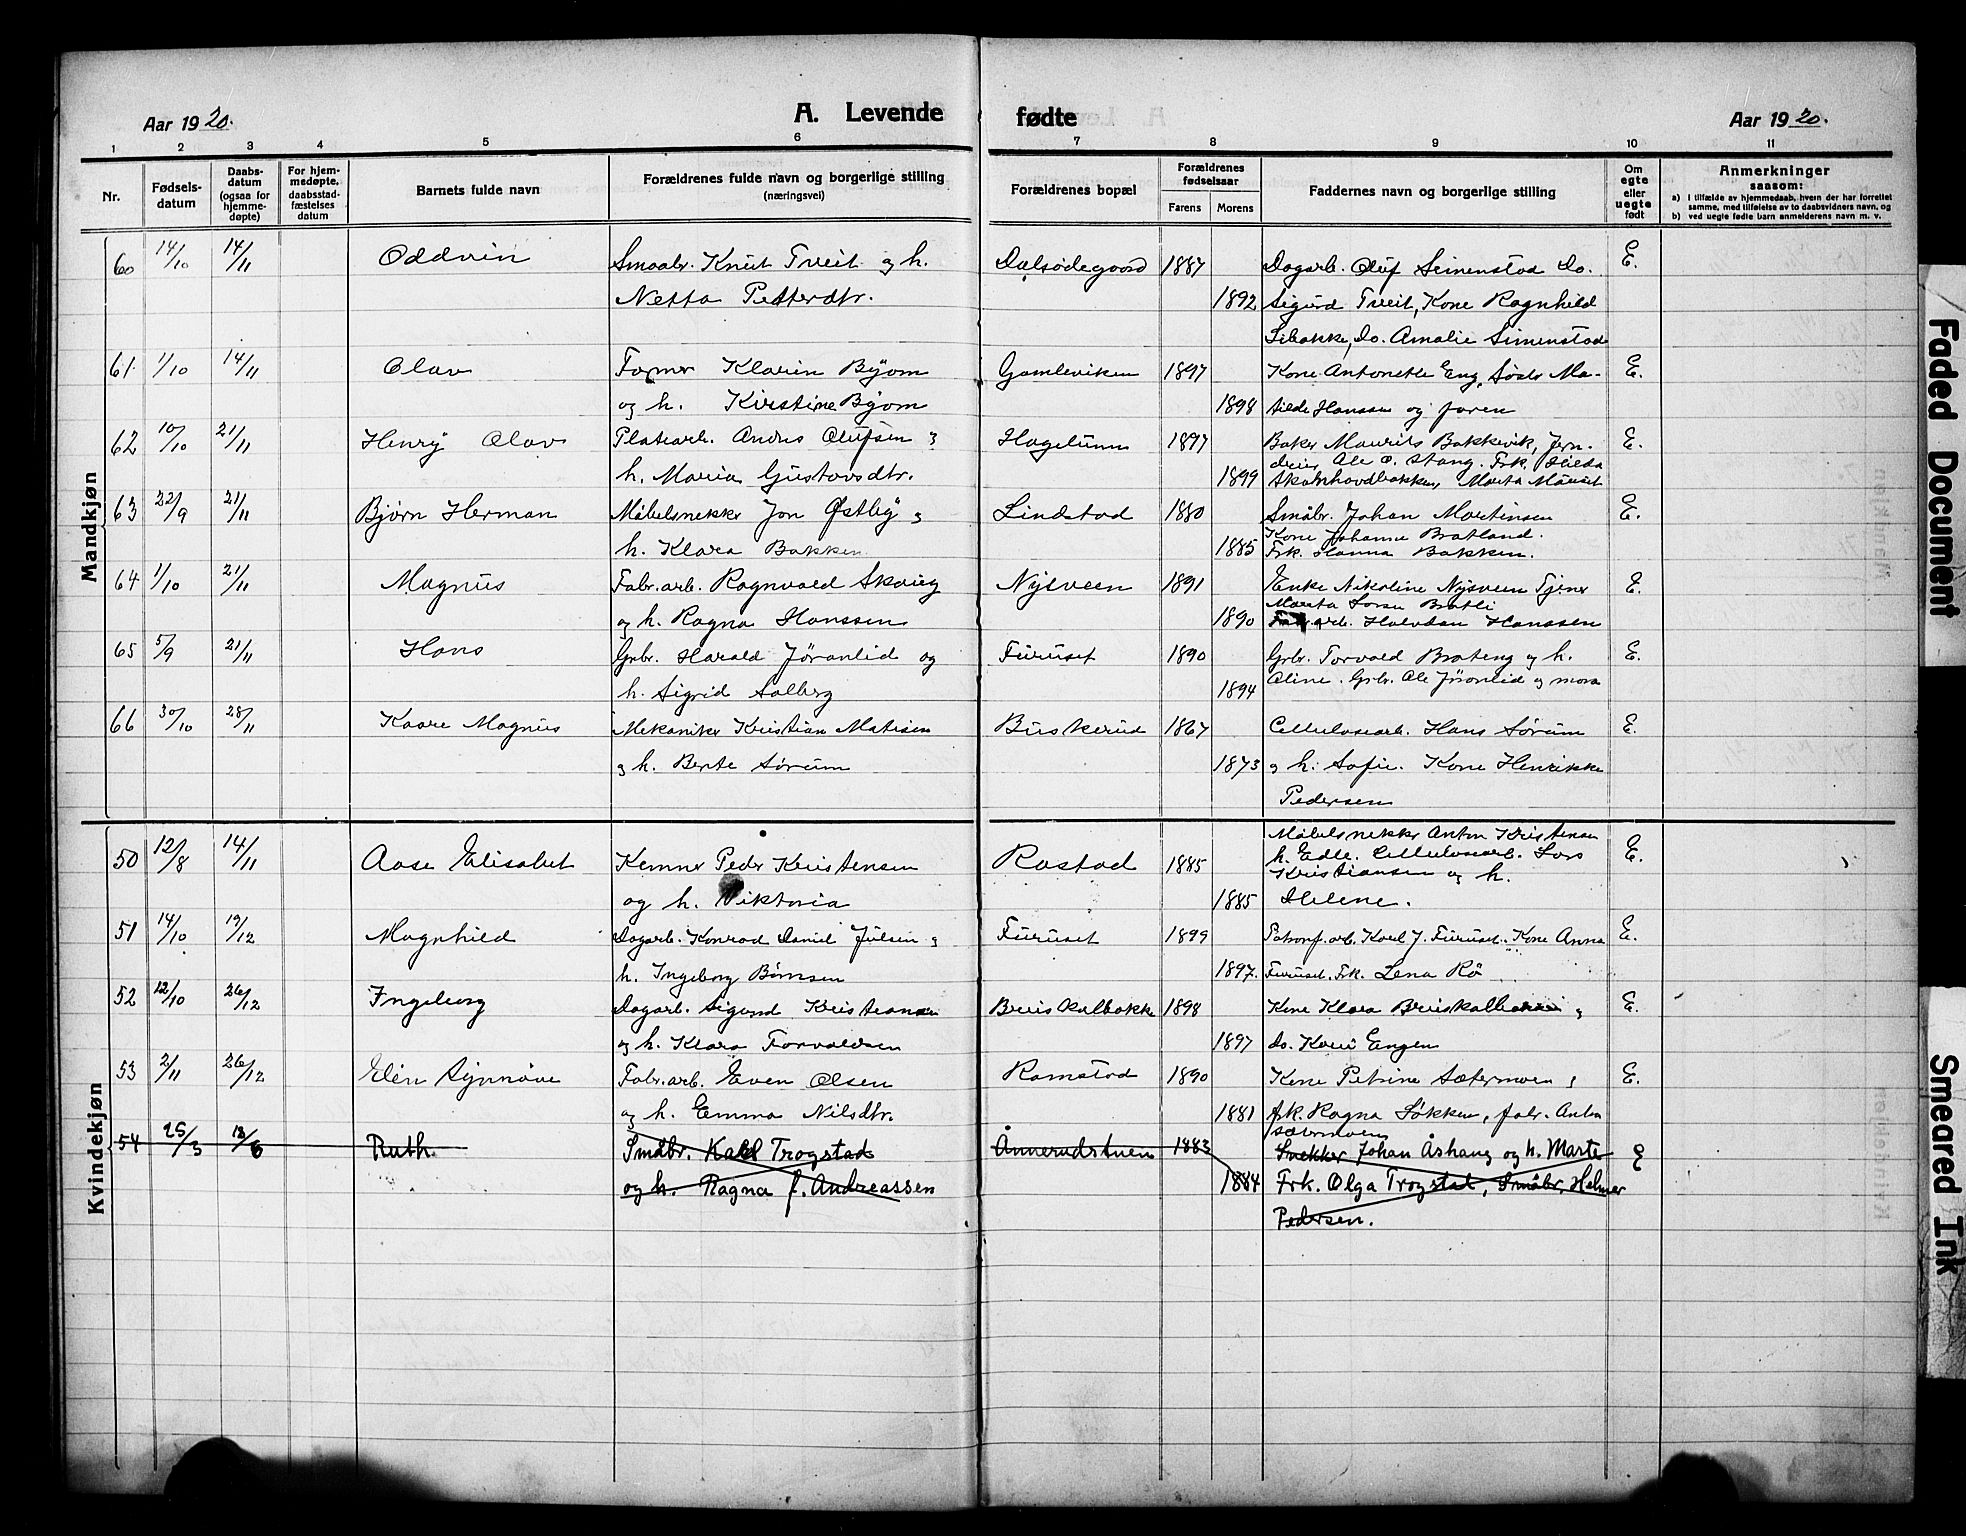 Aar 1920.
A. Levende
fødte
Aar 1920.
1 2 3 4 5 6 7 8 9 10 11
Nr.
Fødsels-
datum
Daabs-
datum
(ogsaa for
hjemme-
døpte)
For hjem-
medøpte,
daabsstad-
fæstelses
datum
Barnets fulde navn
Forældrenes fulde navn og borgerlige stilling
(næringsvei)
Forældrenes bopæl
Forældrenes
fødselsaar
Farens Morens
Faddernes navn og borgerlige stilling
Om
egte
eller
uegte
født
Anmerkninger
saasom:
a) I tilfælde av hjemmedaab, hvem der har forrettet
samme, med tilføielse av to daabsvidners navn, og
b) ved uegte fødte barn anmelderens navn m. v.
Mandkjøn
60 14/10 14/11 Oddvin Smaabr. Knut Tveit og h. Dalsødegaard 1887 Dagarb. Oluf Simenstad Do. E.
Netta Petterdtr. 1892 Sigurd Tveit, Kone Ragnhild
Libakke, Do. Amalie Simenstad
61 1/10 14/11 Olav Former Klarin Byom Gamleviken 1897 Kone Antonette Eng, Søstr Ma- E.
og h. Kirstine Byom 1898 tilde Hanssen og faren
62 10/10 21/11 Henry Olav Platearb. Anders Olufsen og Hagelunn 1897 Baker Maurits Bakkevik, Jern- E.
dreier Ole O. Stang. Frk. Hilda
h. Maria Gustavsdtr. 1899 Skolmhovdbakken, Marta
63 22/9 21/11 Bjørn Herman Møbelsnekker Jon Østby og Lindstad 1880 Småbr. Johan Martinsen E.
Kone Johanne Bratland.
h. Klara Bakken 1885 Frk. Hanna Bakken.
64 1/10 21/11 Magnus Fabr.arb. Ragnvald Skaug Nysveen 1891 Enke Nikoline Nysveen Tjener E.
Marta Bratli
og h. Ragna Hanssen 1890 Halvdan Hanssen
65 5/9 21/11 Hans Grbr. Harald Jøranlid og Furuset 1890 Grbr. Torvald Brateng og h. E.
h. Sigrid Solberg 1894 Aline. Grbr. Ole Jøranlid og mora
66 30/10 28/11 Kaare Magnus Mekaniker Kristian Matisen Buskerud 1867 Cellulosearb. Hans Sørum E.
og h. Berte Sørum 1873 og h. Sofie. Kone Henrikke
Pedersen
Kvindekjøn
Møbelsnekker Anton Kristensen
50 12/8 14/11 Aase Elisabet Kemner Peder Kristensen Rostad 1885 h. Edle. Cellulosearb. Lars E.
Kristiansen og h.
og h. Viktoria 1885 Helene.
51 14/10 19/12 Magnhild Dagarb. Konrad Daniel Julsen og Furuset 1899 Patronf.arb. Karl J. Furuset. Kone Anna E.
h. Ingeborg Bømsen 1897. Furuset. Frk. Lena Rø
52 12/10 26/12 Ingeborg Dagarb. Sigurd Kristiansen Bruskalbakke 1898 Kone Klara Bruskalbakken og E.
og h. Klara Torvaldsen 1897 do. Kari Engen
53 2/11 26/12 Elin Synnøve Fabr.arb. Even Olsen Ramstad 1890 Kone Petrine Sætermoen og E.
og h. Emma Nilsdtr. 1881 frk. Ragna Løkken, fabr. Anton
sætermoen
54 25/3 13/6 Ruth Småbr. Karl Trogstad Annerudstuen 1883 Snekker Johan Åshaug og h. Marte E
og h. Ragna f. Andreassen 1884 Frk. Olga Trogstad, Småbr. Helmer
Pedersen.
Faded Document
Smeared Ink